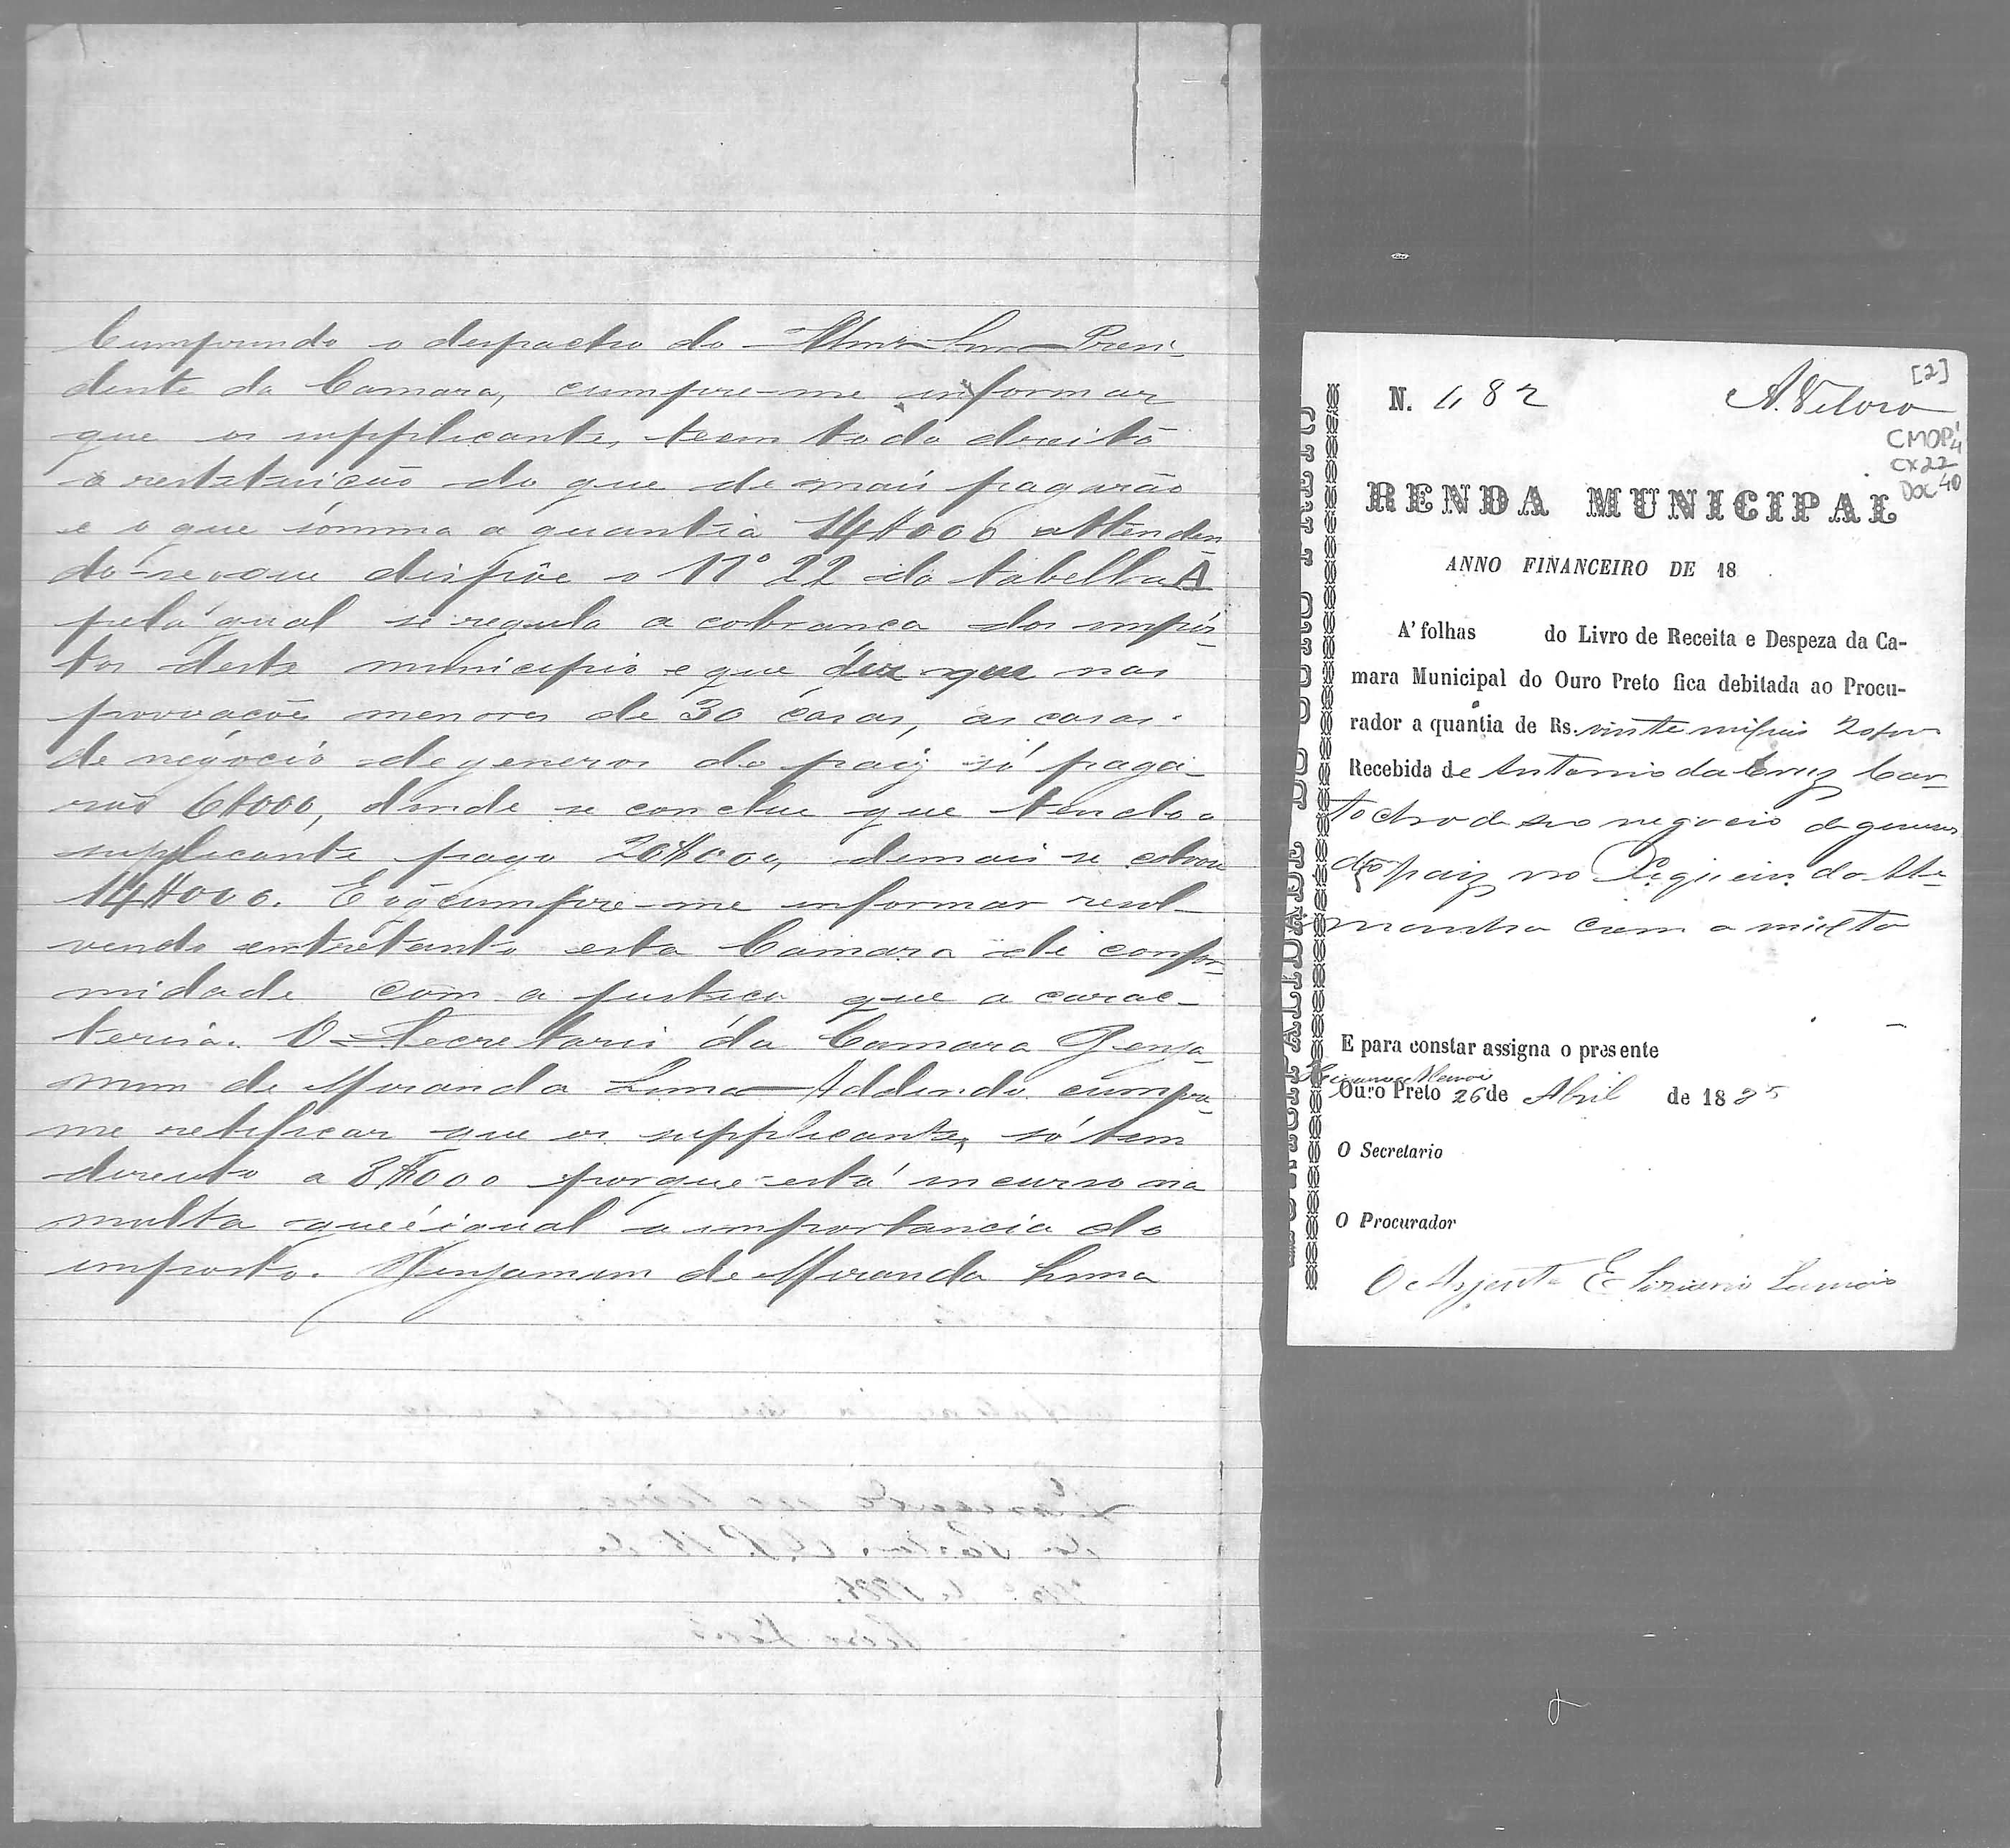 Cumprindo o despacho do Illmo Snr Presi-
dente da Camara, cumpre-me informar
que os supplicantes, teem todo direito
a restituicão do que de mais pagarão
e o que sómma a quantia 14$000 attenden
do-se ao que dispõe o Nº 22 da tabella A
pela qual se regula a cobranca dos impós-
tos deste municipio e que diz que nas
povoacões menores de 30 cásas, as casas
de negocio de generos do paiz só paga-
rão 6$000, donde se conclue que tendo o
supplicante pago 20$000, demais se cobrou
14$000. E o q cumpre-me informar resol-
vendo entretanto esta Camara de confor-
midade com a justica que a carac-
terisa. O Secretario da Camara Benja-
mim de Miranda Lima Addindo cumpre-
me retificar que os supplicantes, só tem
direito a 8$000 porque está incurso na
multa que é igual a importancia do
imposto. Benjamim de Miranda Lima
[2]
N. 482 A. Veloso
CMOP
CX 22
DOC 40
RENDA MUNICIPAL
ANNO FINANCEIRO DE 18
A' folhas do Livro de Receita e Despeza da Ca-
mara Municipal do Ouro Preto fica debitada ao Procu-
rador a quantia de Rs. vinte mil reis
Recebida de Antonio da Cruz Car-
tocho de seo negocio de generos
do paiz no da Ale-
manha com a multa
E para constar assigna o presente
Ouro Preto 26 de Abril de 1885
O Secretario
O Procurador
O Agente